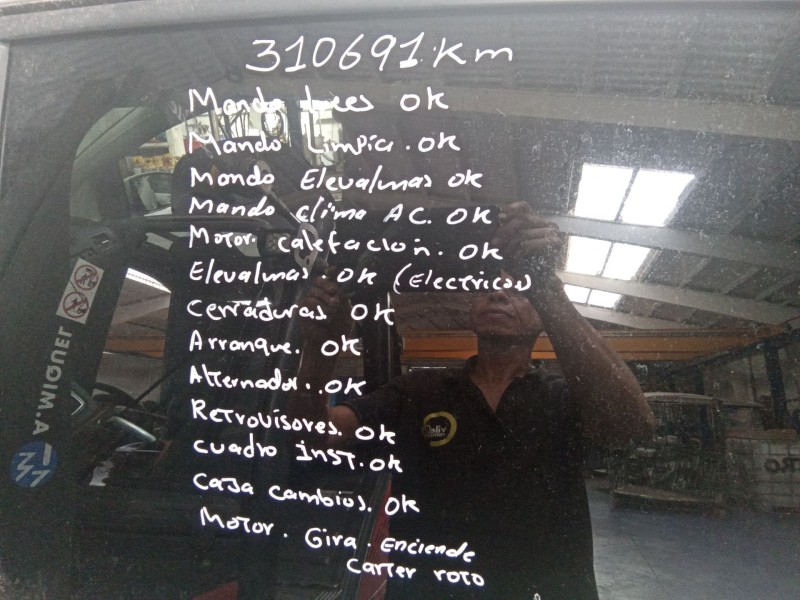 310691 km
Mando luces OK
Mando Limpia. OK
Mando Elevalunas OK
Mando clima AC. OK
Motor. calefacion. OK
Elevalunas. OK (Electricos)
Cerraduras OK
Arranque. OK
Alternador.. OK
Retrovisores. OK
cuadro inst. OK
Caja cambios. OK
Motor. Gira. Enciende
carter roto
A. MIGUEL